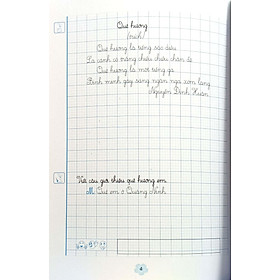 Quê hương
(trích)
Quê hương là tiếng sáo diều
Là cánh cò trắng chiều chiều chân đê
Quê hương là mới sáng ra
Bình minh gáy sáng ngân nga xóm làng
Nguyễn Đình Huân
Viết câu giới thiệu quê hương em.
M: Quê em ở Quảng Ninh
4